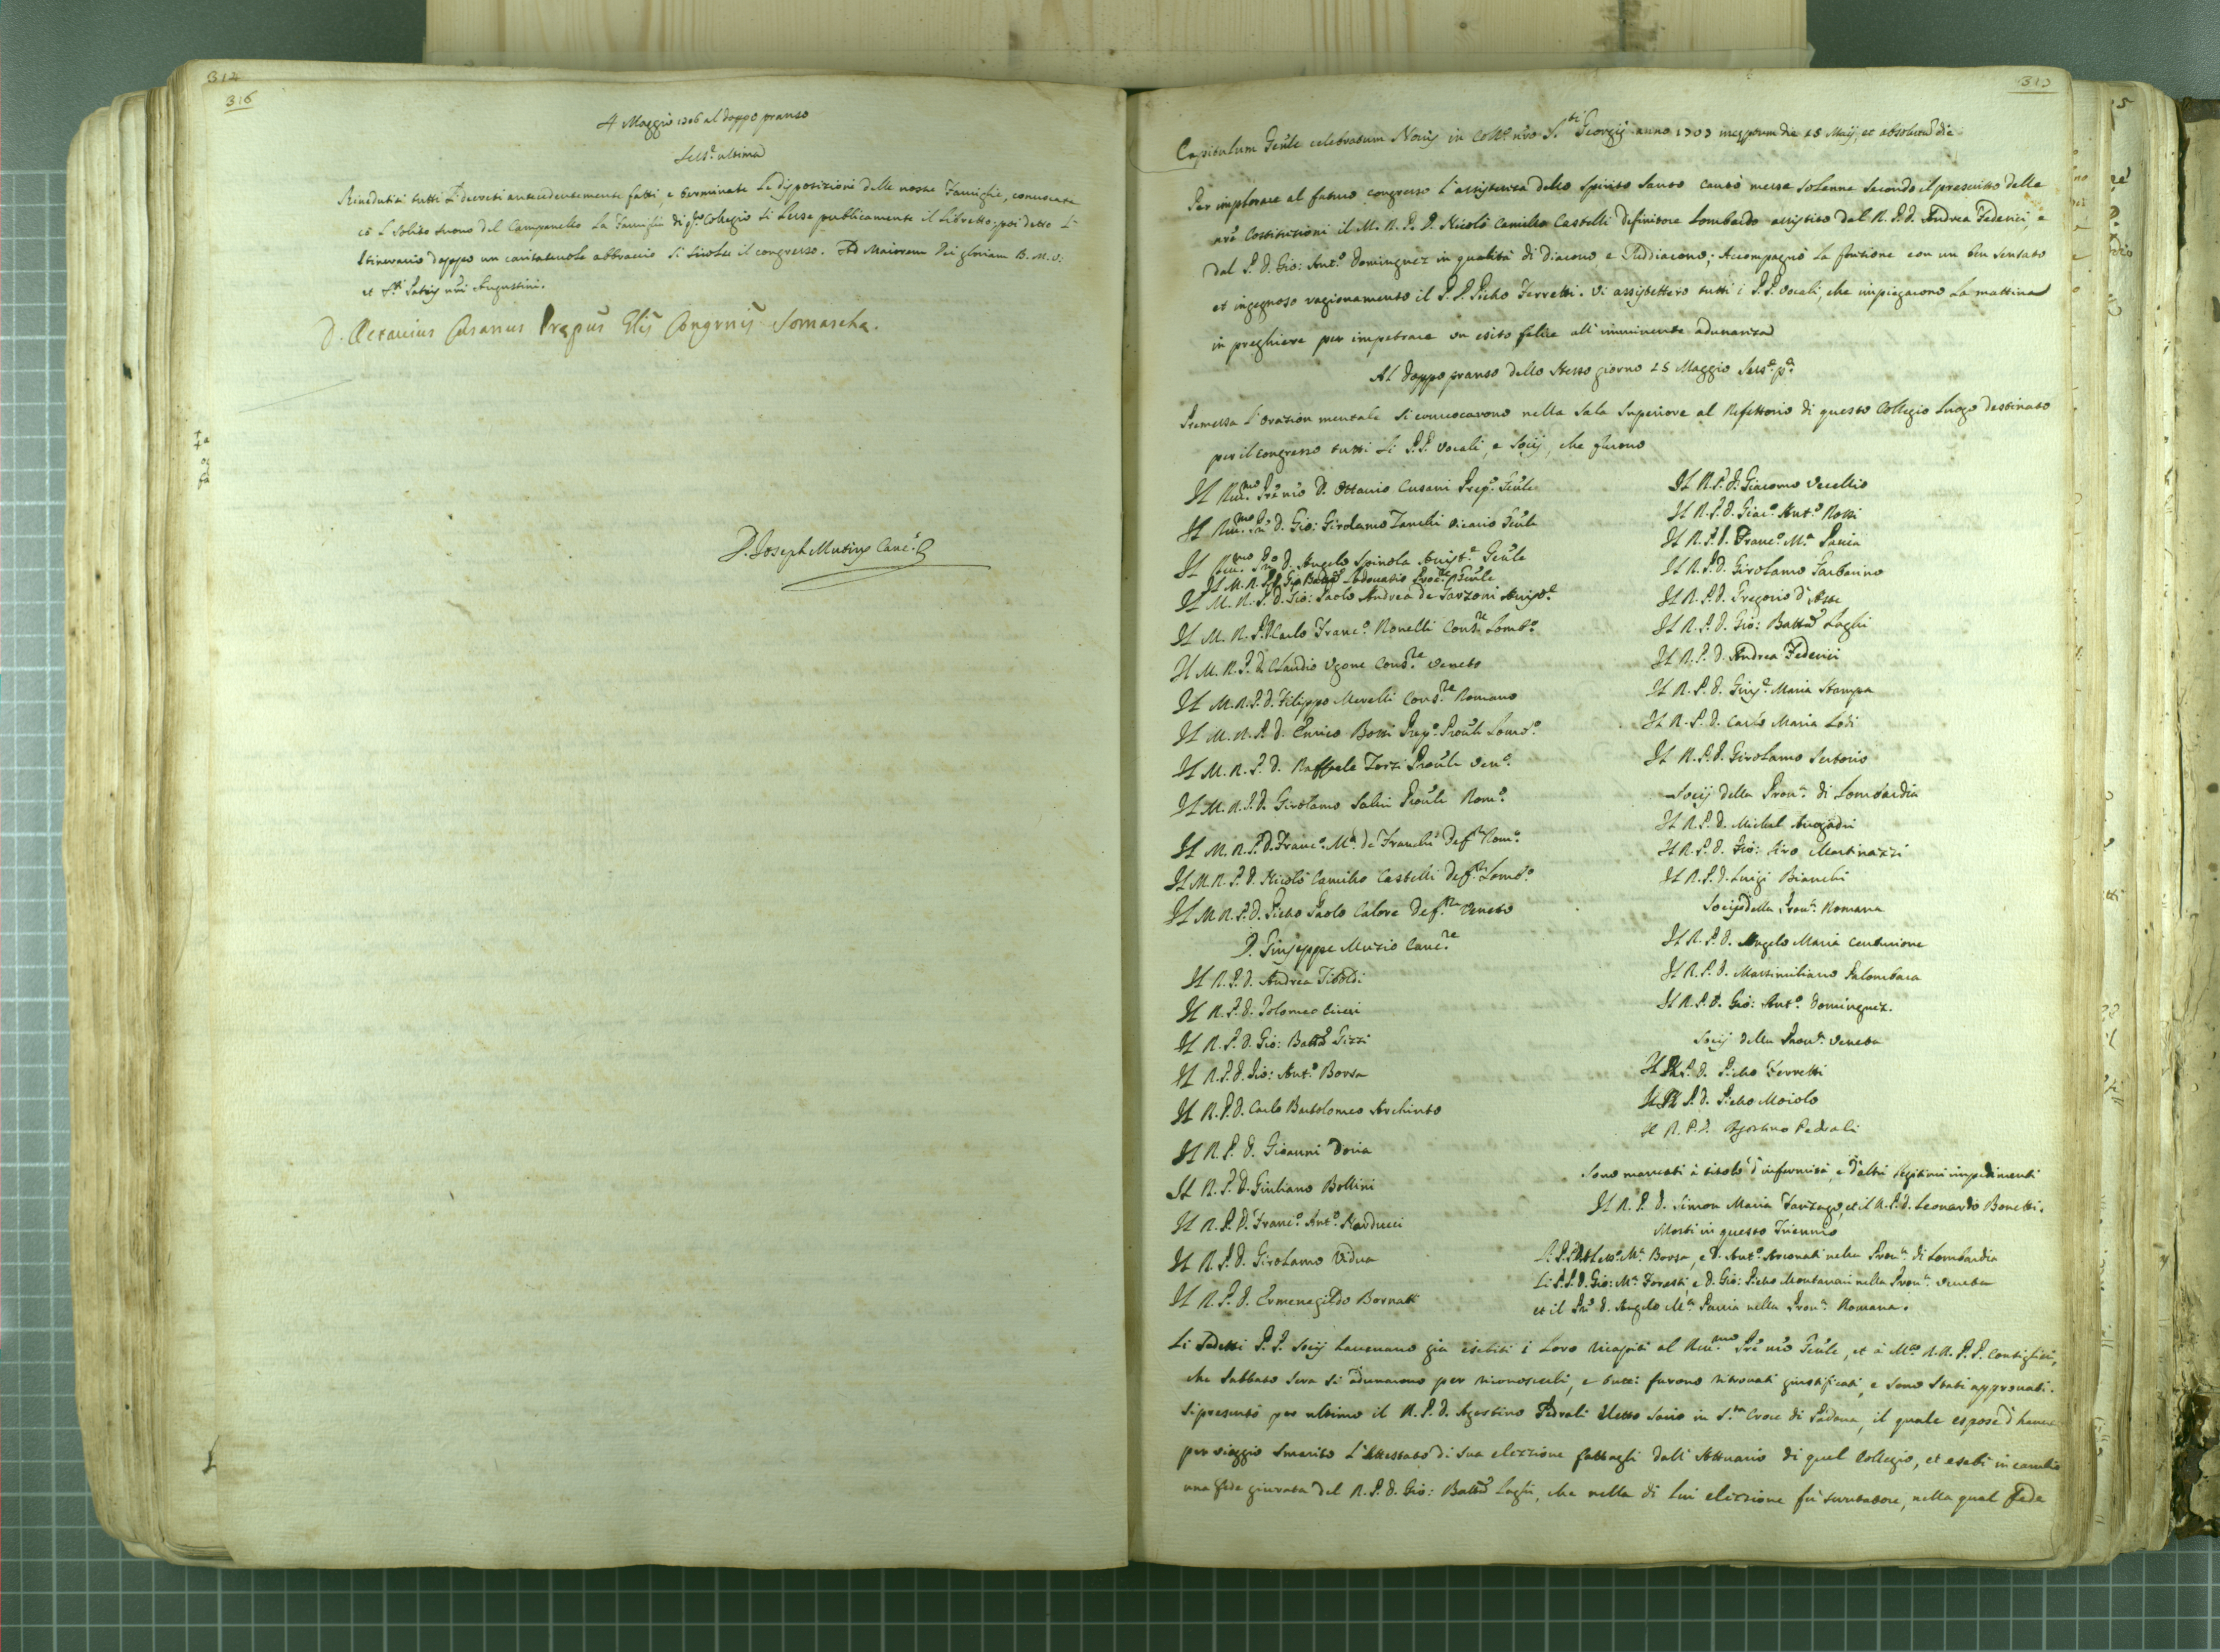 314
316
4 Maggio 1706 al doppo pranso
Sess.e ultima
Rinedutisi tutti Li decreti antecedentemente fatti, e terminate Le disposizioni delle nostre Famiglie, conuocata
cõ L solito suono del Campanello La Famiglia di q.sto Collegio si Lesse publicamente il Libretto, poi detto L'
Itinerario doppo un caritateuole abbraccio si sciolse il congresso. Ad Maiorem Dei gloriam B. M. V.
et S.ti Patris nr̃i Augustini.
D. Octavius Cusanus Præpũs Gñlis Congrñis Somaschæ.
D. Joseph Mutius Canc.s
313
Capitulum Geñle celebratum Nouis in Coll.o nr̃o S.ti Georgij anno 1707 inceptum die 15 Maij, et absolutum die
Per implorare al futuro congresso l'assistenza dello Spirito Santo cantò messa solenne secondo il prescritto delle
nr̃e Costituzioni il M. R. P. D. Nicolò Camillo Castelli definitore Lombardo assistito dal R. P. D. Andrea Federici, e
dal P. D. Gio: Ant.o Dominguez in qualità di Diacono e Suddiacono; Accompagnò la fontione con un ben sensato
et ingegnoso ragionamento il P. D. Pietro Ferretti. Vi assistettero tutti i P.P. Vocali, che impiegarono La mattina
in preghiere per impetrare un esito felice all' imminente adunanza
Al doppo pranso dello stesso giorno 15 Maggio Sess.e p.a
Premessa L'oration mentale si conuocarono nella Sala superiore al Refettorio di questo Collegio luogo destinato
per il congresso tutti li P.P. Vocali, e Socij, che furono
Il Reu.mo Prẽ nr̃o D. Ottauio Cusani Prep.o Geñle
Il Reu.mo P. D. Gio: Girolamo Zanchi Vicario Geñle
Il Reu.mo P. D. Angelo Spinola Assist.e Geñle
Il M. R. P. D. Gio Batta Lodouasio Proc.re Geñle
Il M. R. P. D. Gio: Paolo Andrea de Garzoni
Il M. R. P. D. Carlo Franc.o Nouelli Cons.re Lomb.o
Il M. R. P. D. Claudio Ugone Cons.re Veneto
Il M. R. P. D. Filippo Merelli Cons.re Romano
Il M. R. P. D. Enrico Bossi Prep.o Prouĩle Lomb.o
Il M. R. P. D. Raffaele Torri Prouĩle Ven.o
Il M. R. P. D. Girolamo Salui Prouĩle Rom.o
Il M. R. P. D. Franc.o M.a de Franchi Def.re Rom.o
Il M. R. P. D. Nicolò Camillo Castelli Def.re Lomb.o
Il M. R. P. D. Pietro Paolo Calore Def.re Veneto
D. Giuseppe Mutio Canc.re
Il R. P. D. Andrea Tiboldi
Il R. P. D. Tolomeo Ciceri
Il R. P. D. Gio: Batta Pizzi
Il R. P. D. Gio: Ant.o Borsa
Il R. P. D. Carlo Bartolomeo Archinto
Il R. P. D. Giouanni Doria
Il R. P. D. Giuliano Bollini
Il R. P. D. Franc.o Ant.o Narducci
Il R. P. D. Girolamo Vidua
Il R. P. D. Ermenegildo Bornati
Il R. P. D. Giacomo Vecellio
Il R. P. D. Giac.o Ant.o Rossi
Il R. P. D. Franc.o M.a Pauia
Il R. P. D. Girolamo Garbarino
Il R. P. D. Gregorio d'Aste
Il R. P. D. Gio: Batta Laghi
Il R. P. D. Andrea Federici
Il R. P. D. Gius.e Maria Stampa
Il R. P. D. Carlo Maria Lodi
Il R. P. D. Girolamo Sertorio
Socij della Prou.a di Lombardia
Il R. P. D. Michel Auogadri
Il R. P. D. Gio: Siro Martinazzi
Il R. P. D. Luigi Bianchi
Socij della Prou.a Romana
Il R. P. D. Angelo Maria Centurione
Il R. P. D. Massimiliano Palombara
Il R. P. D. Gio: Ant.o Dominguez.
Socij della Prou.a Veneta
Il R. P. D. Pietro Ferretti
Il R. P. D. Pietro Moiolo
Il R. P. D. Agostino Pedrali
Sono mancati à titolo d'infermità, e d'altri legitimi impedimenti
Il R. P. D. Simon Maria Fanzago, et il R. P. D. Leonardo Bonetti.
Morti in questo Triennio
M.a Borsa, e D. Ant.o nella Prou.a di Lombardia
Li P.P. D. Gio: M.a Foresti, e D. Gio: Pietro Montanari nella Prou.a Veneta
et il P. D. Angelo M.a Pauia nella Prou.a Romana.
Li Sudetti P. P. Socij haueuano già esibiti i Loro ricapiti al Reu.mo Prẽ nr̃o Geñle, et à M.to R.R. P. P. Consiglieri,
che Sabbato sera si adunarono per riconoscerli, e tutti furono ritrouati giustificati, e sono stati approuati.
Si presentò per ultimo il R. P. D. Agostino Pedrali eletto Socio in S.ta Croce di Padoua, il quale espose d'hauere
per viaggio smarito L'attestato di sua elezzione fattagli dall' Attuario di quel Collegio, et esebì in cambio
una fede giurata del R. P. D. Gio: Batta Laghi, che nella di lui elezzione fù scrutatore, nella qual fede